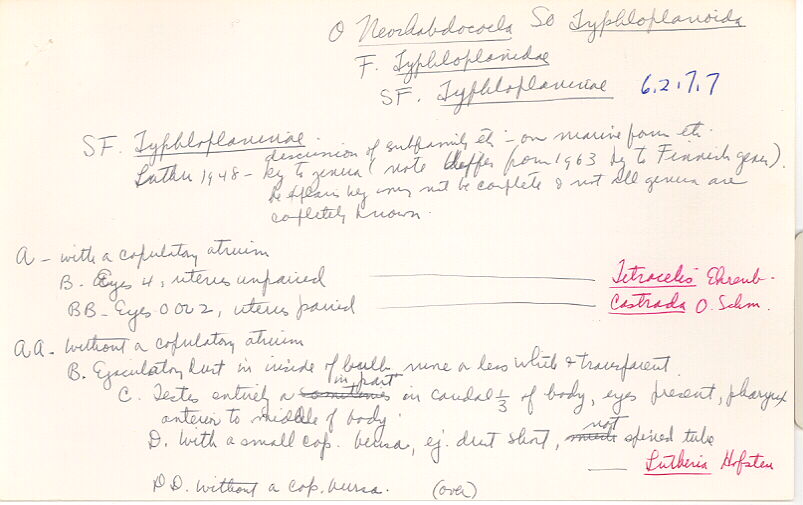 O Neorhabdocoela So Typhloplanoida
F. Typhloplanidae
SF. Typhloplaninae 6.2.7.7
SF. Typhloplaninae.
discussion of subfamily etc - on marine form etc.
Luther 1948 - key to genera (note differs from 1963 key to Finnish genera).
he explains key may not be complete & not all genera are
completely known.
A - with a copulatory atrium
B. Eyes 4, uterus unpaired Tetracelis Ehrenb.
BB - Eyes 0 or 2, uterus paired Castrada O. Schm.
AA - Without a copulatory atrium
B. Ejaculatory duct in inside of bulb more or less white & transparent.
C. Testes entirely or in part in caudal 1/3 of body, eyes present, pharynx
anterior to middle of body.
D. With a small cop. bursa, ej. duct short, not spined tube
Lutheria Hofsten
DD. without a cop. bursa. (over)